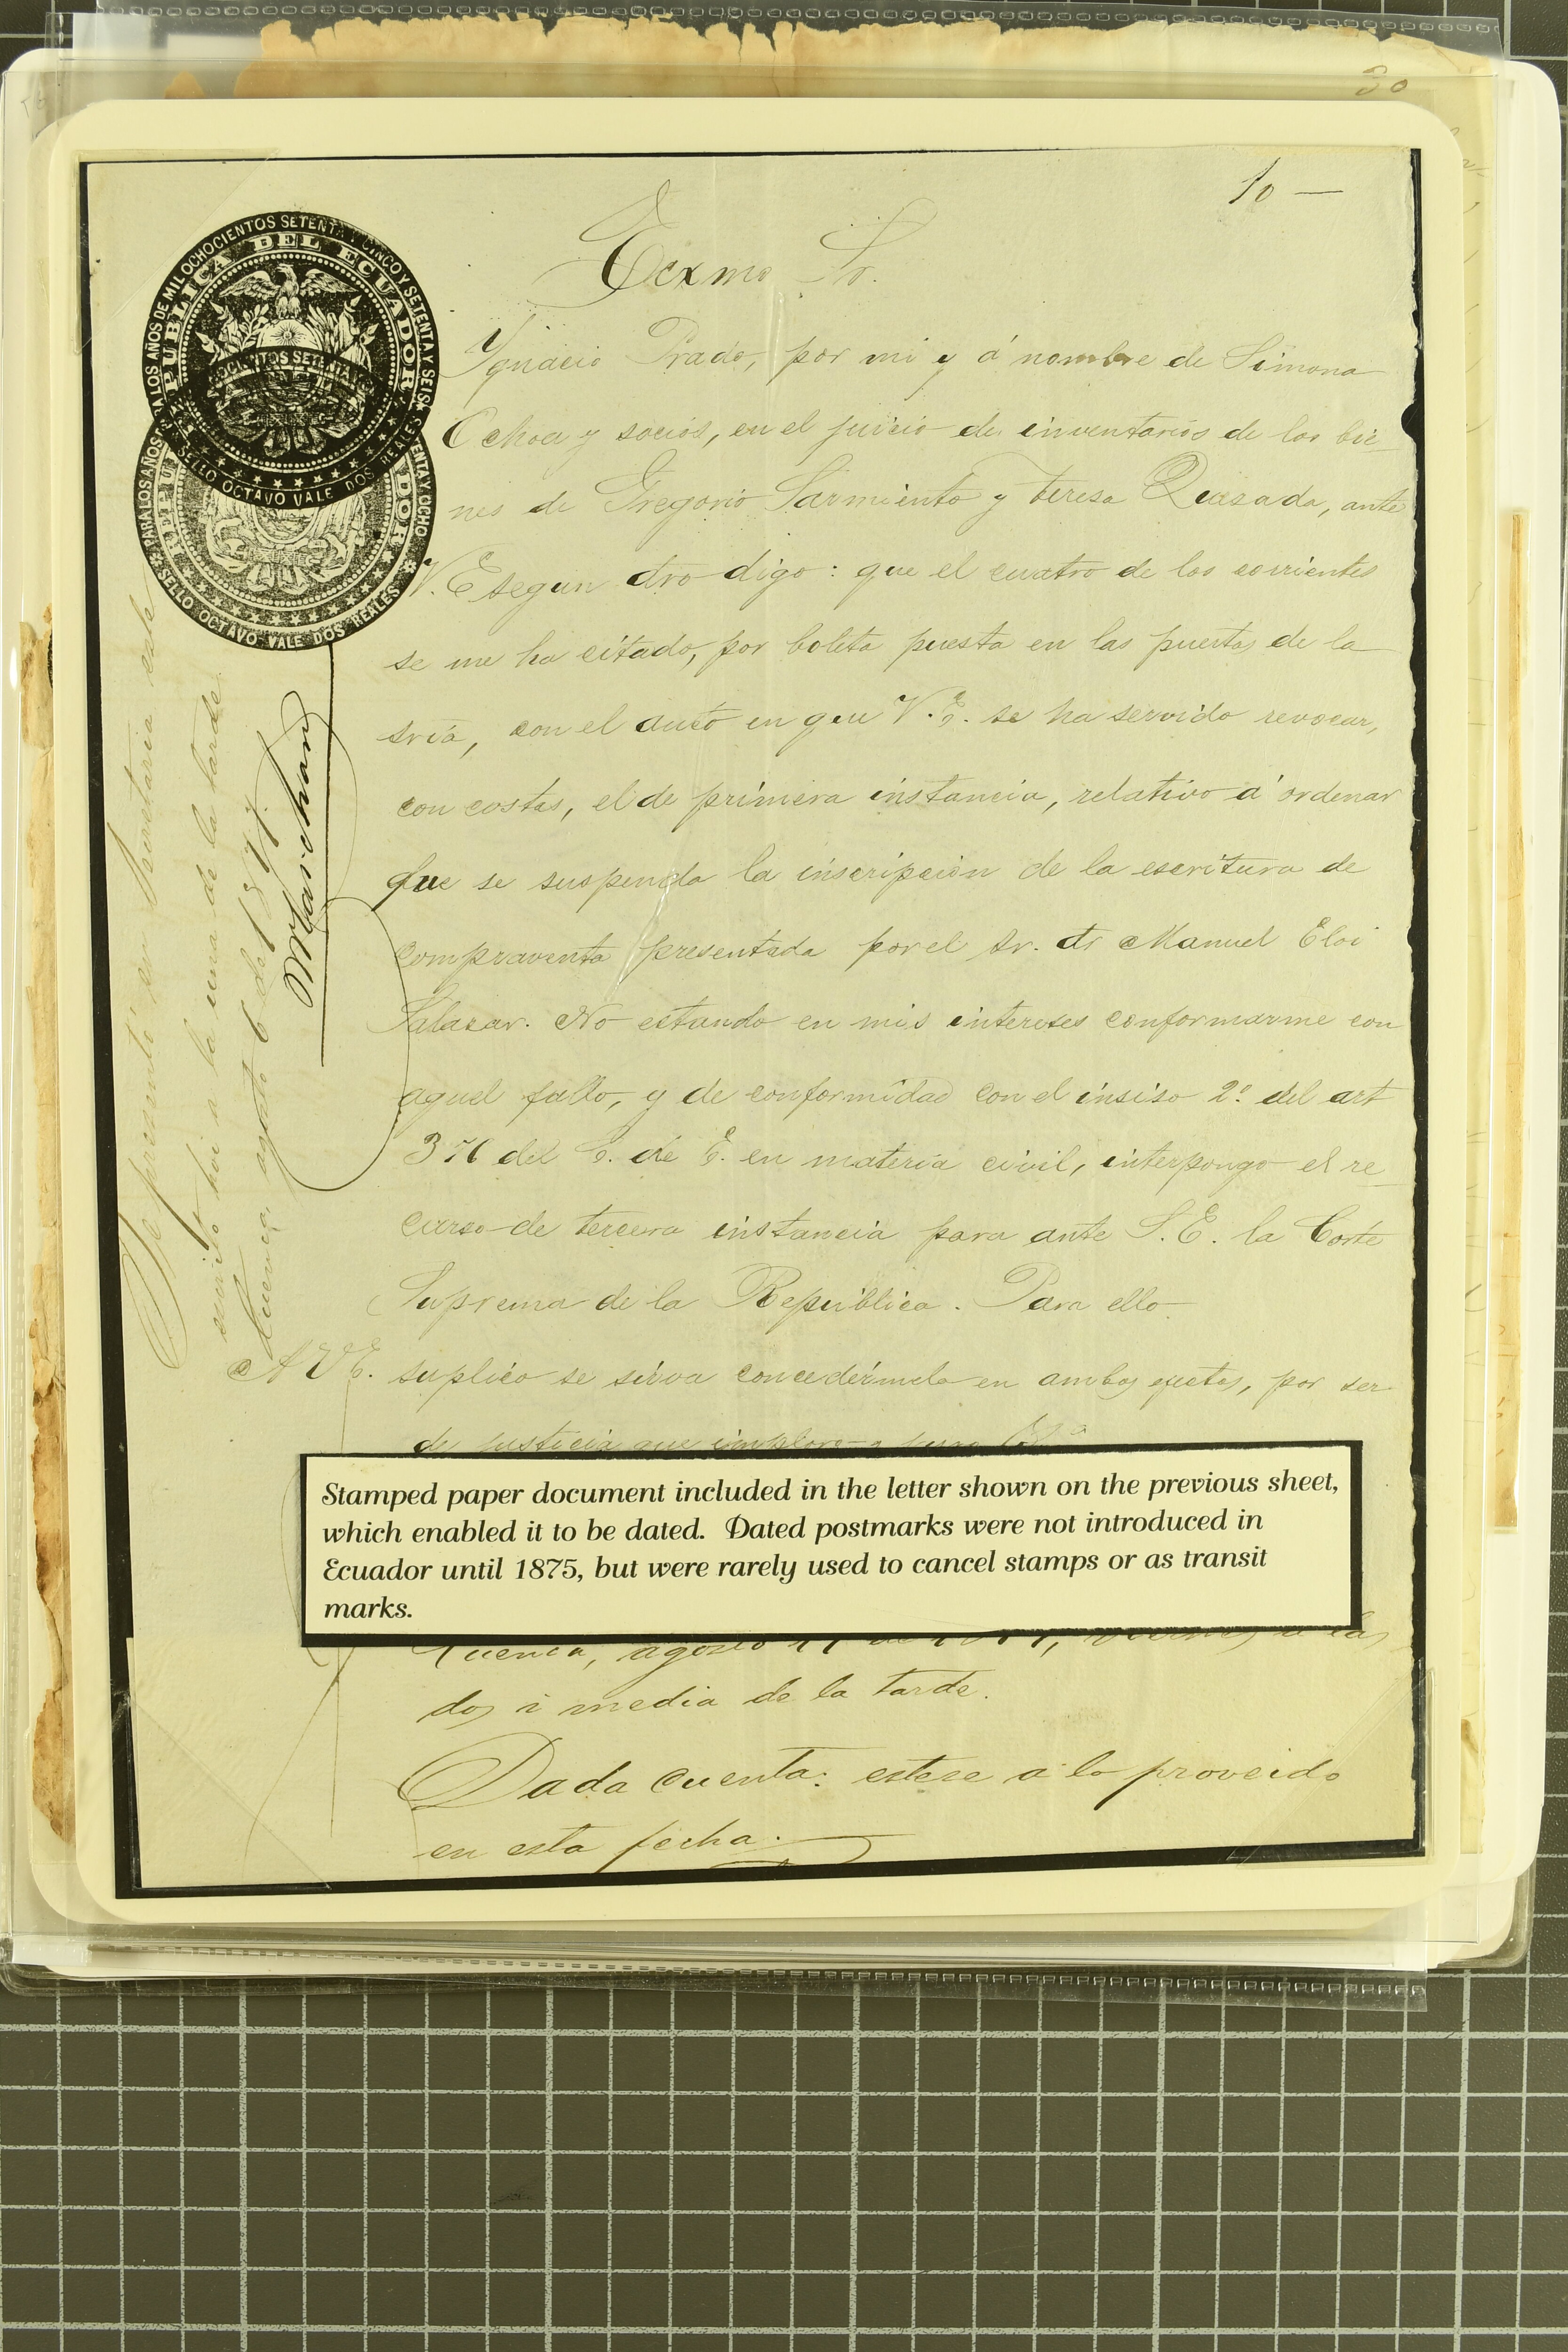 30
10 —
PARA LOS AÑOS DE MIL OCHOCIENTOS SETENTA Y CINCO Y SETENTA Y SEIS
REPUBLICA DEL ECUADOR
SELLO OCTAVO VALE DOS REALES
OCHOCIENTOS SETENTA
PARA LOS AÑOS
SETENTA Y OCHO
SELLO OCTAVO VALE DOS REALES
Ecxmo Sr.
Ygnacio Prado, por mi y á nombre de Simona
Ochoa y socios, en el juicio de inventarios de los bie-
nes de Gregorio Sarmiento y Teresa Quesada, ante
V. E segun dro digo: que el cuatro de los corrientes
se me ha citado, por boleta puesta en las puertas de la
sria, con el auto en que V. E. se ha servido revocar,
con costas, el de primera instancia, relativo á ordenar
que se suspenda la inscripcion de la escritura de
compraventa presentada por el Sr. dr Manuel Eloi
Salazar. No estando en mis intereses conformarme con
aquel fallo, y de conformidad con el insiso 2º del art
del C. de E. en materia civil, interpongo el re-
curso de tercera instancia para ante S. E. la Corte
Suprema de la República. Para ello
A V E. suplico se sirva concedérmelo en ambos efectos, por ser
de justicia que imploro
Se presentó en Secretaria este
escrito hoi a la una de la tarde.
Cuenca, agosto 6 de 1877.
Marchan
Stamped paper document included in the letter shown on the previous sheet,
which enabled it to be dated. Dated postmarks were not introduced in
Ecuador until 1875, but were rarely used to cancel stamps or as transit
marks.
Cuenca, agosto
dos i media de la tarde.
Dada cuenta: estese a lo proveido
en esta fecha.